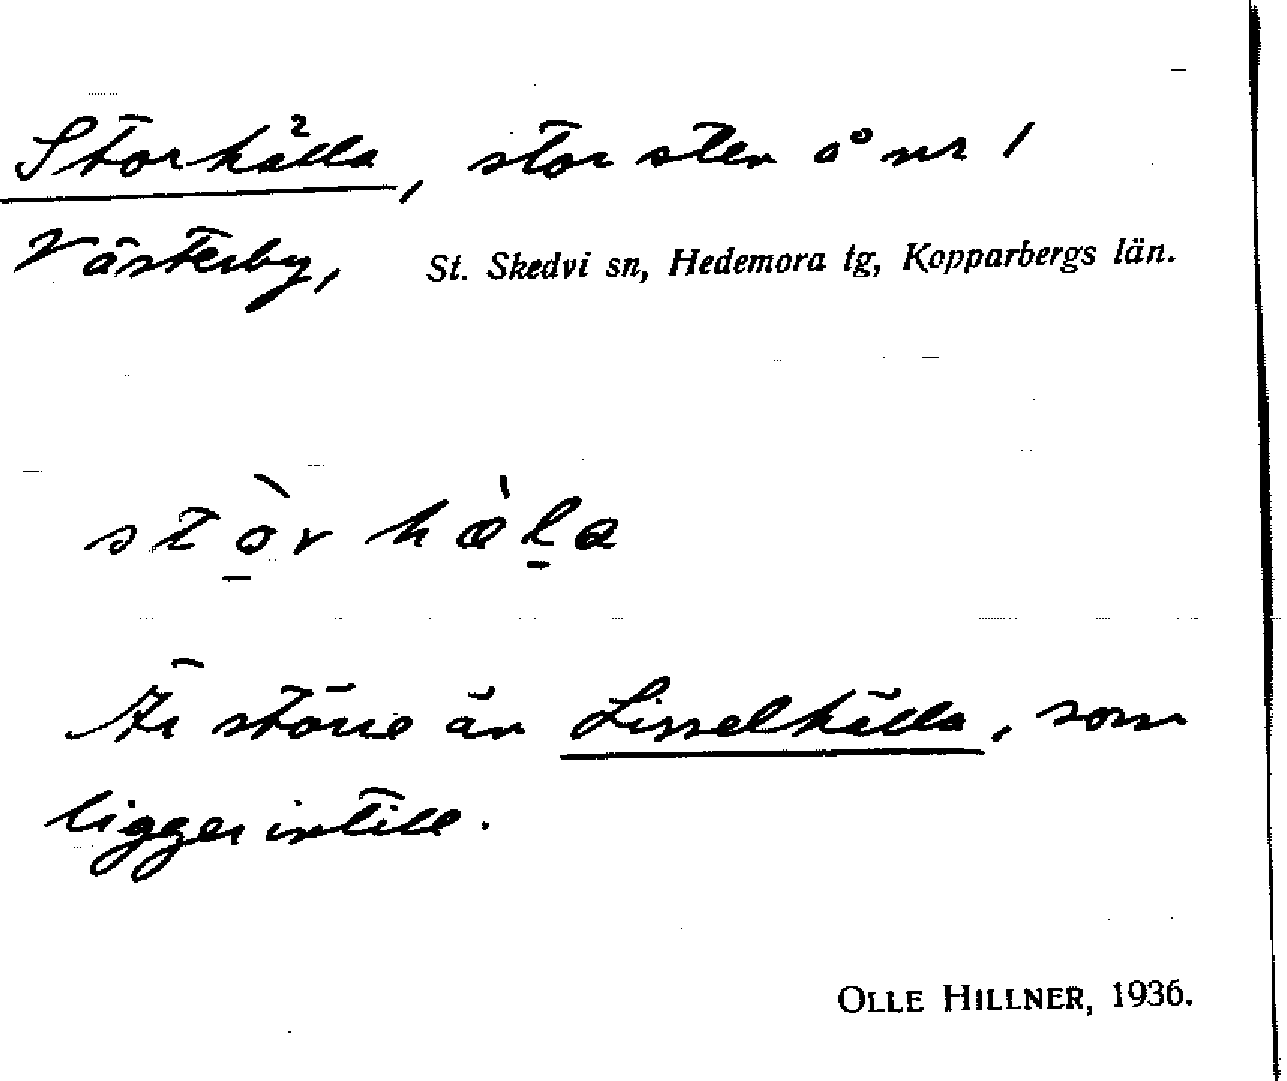 Storhälla, stor sten å nr 1
Västerby, St. Skedvi sn, Hedemora tg, Kopparbergs län.
stò̠r hæ̀l̠a
Är större än Lisselhälla, som
ligger intill.
OLLE HILLNER, 1936.